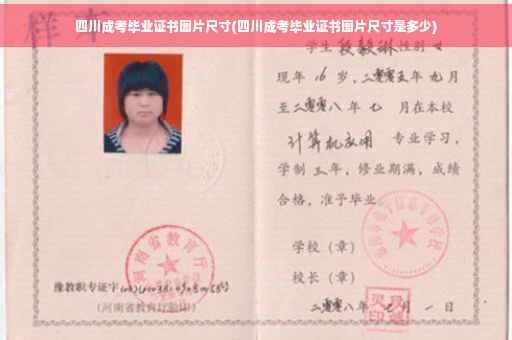 四川成考毕业证书图片尺寸(四川成考毕业证书图片尺寸是多少)
样本
学生 段毅琳 性别 女
现年 16 岁，二零零五年 九月
至二零零八年 七 月在本校
计算机应用 专业学习，
学制 三 年，修业期满，成绩
合格，准予毕业
学校（章）
校长（章）
二零零八年 七 月 一 日
河南省教育厅
豫教职专证字
(河南省教育厅验印)